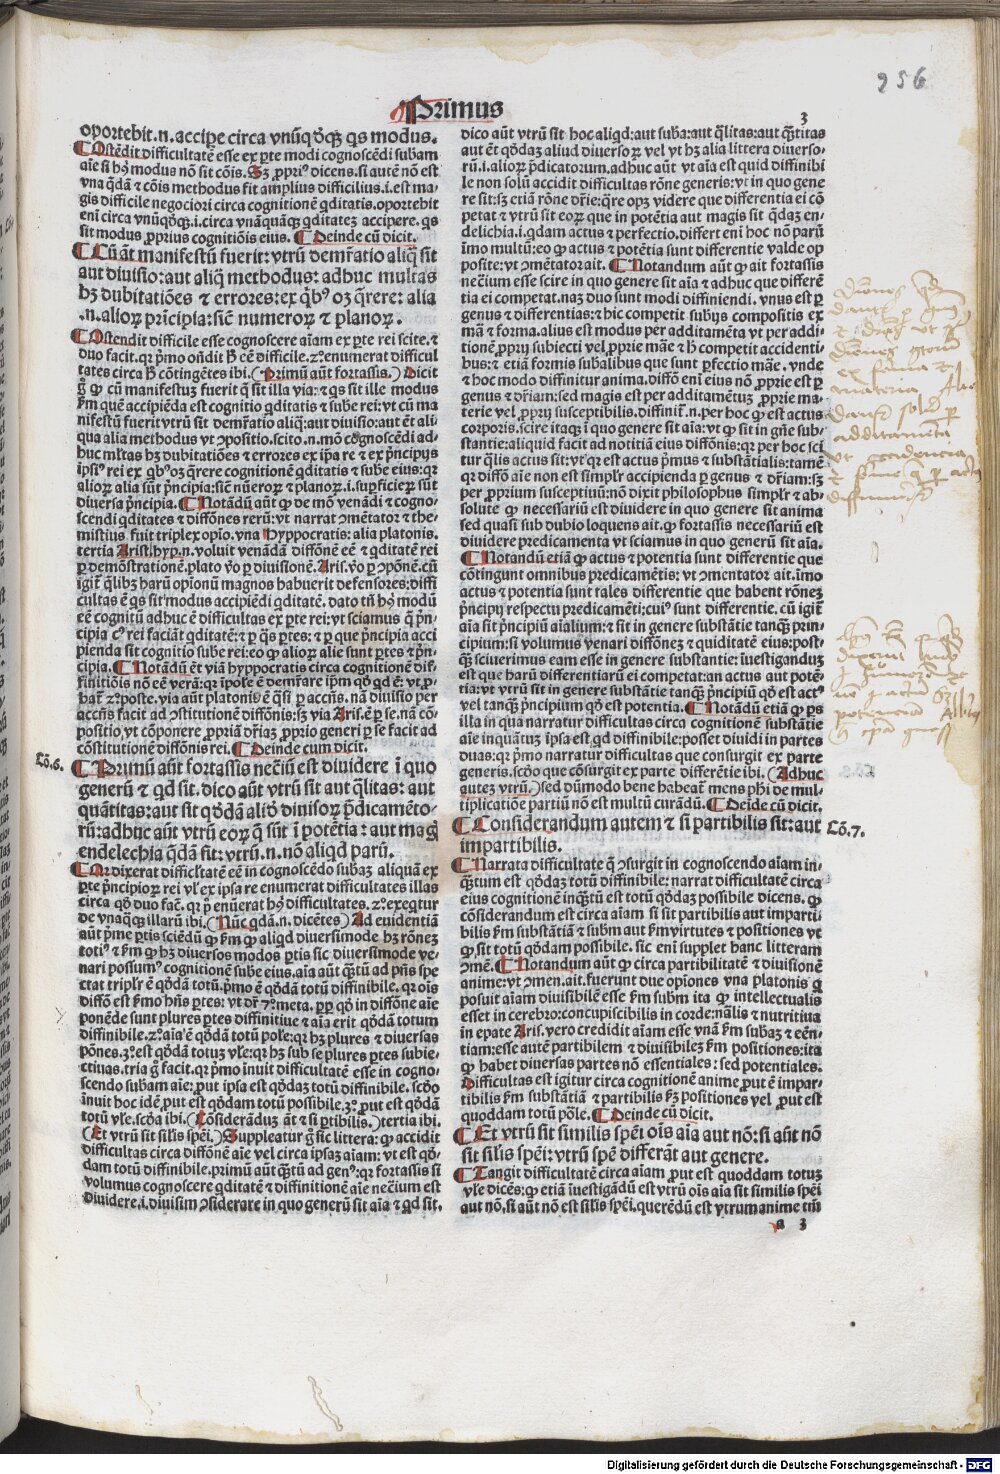 256
Primus
3
oportebit.n.accipe circa vnūq̄ȯq̄ꝫ q̄s modus.
¶Ostēdit difficultatē esse ex ꝑte modi cognoscēdi subam
aīe si hꝰ modus nō sit cōis.Sꝫ ꝓpriꝰ dicens.si autē nō est
vna q̄dā ⁊ cōis methodus fit amplius difficilius.i.est ma-
gis difficile negociori circa cognitionē q̄ditatis.oportebit
eni circa vnūq̄ȯqꝫ.i.circa vnāquāqꝫ q̄ditateꝫ accipere.q̄s
sit modus ꝓprius cognitiōis eius.¶Deinde cū dicit.
¶Cū āt manifestū fuerit:vtrū demr̄atio aliq̄ sit
aut diuisio:aut aliq̄ methodus: adhuc multas
hꝫ dubitatiōes ⁊ errores:ex q̄bꝰ oꝫ q̄rere: alia
.n.alioꝝ prīcipia:sicē numeroꝝ ⁊ planoꝝ.
¶Ostendit difficile esse cognoscere aīam ex ꝑte rei scite.⁊
duo facit.qꝛ pͥmo oñdit ħ eē difficile.2ꝰ.enumerat difficul
tates circa ħ cōtingētes ibi.(Primū aūt fortassis.) Dicit
g̊ ꝙ cū manifestuꝫ fuerit q̄ sit illa via: ⁊ q̄s sit ille modus
ẜm quē accipiēda est cognitio q̄ditatis ⁊ sube rei: vt cū ma
nifestū fuerit vtrū sit demr̄atio aliq̄:aut diuisio:aut ēt ali
qua alia methodus vt ↄpositio.scito.n.mō cognoscēdi ad-
huc ml̄tas hꝫ dubitatiōes ⁊ errores ex ip̄a re ⁊ ex pͥncipijs
ipsiꝰ rei ex q̄bꝰ oꝫ q̄rere cognitionē q̄ditatis ⁊ sube eius:qꝛ
alioꝝ alia sūt pͥncipia:sicē nūeroꝝ ⁊ planoꝝ.i.suꝑficieꝝ sūt
diuersa pͥncipia.¶Notādū aūt ꝙ de mō venādi ⁊ cogno-
scendi q̄ditates ⁊ diffōnes rerū:vt narrat ↄmētator ⁊ the-
mistius fuit triplex opīo.vna Hyppocratis: alia platonis.
tertia Arist.hyp.n.voluit venādā diffōnē eē ⁊ q̄ditatē rei
ꝑ demōstrationē.plato vo ꝑ diuisionē.Aris.vo ꝑ ↄpōnē.cū
igit̄ q̄libꝫ harū opīonū magnos habuerit defensores:diffi
cultas ē q̄s sit modus accipiēdi q̄ditatē.dato tn̄ hꝰ modū
eē cognitū adhuc ē difficultas ex ꝑte rei:vt sciamus q̄ pͥn-
cipia cꝰ rei faciāt q̄ditatē:⁊ ꝑ q̄s ꝑtes: ⁊ ꝑ que pͥncipia acci
pienda sit cognitio sube rei:eo ꝙ alioꝝ alie sunt ꝑtes ⁊ pͥn-
cipia.¶Notādū ēt viā hyppocratis circa cognitionē dif-
finitiōis nō eē verā:qꝛ īpole ē demr̄are ip̄m qȯ q̄d ē: vt ꝓ-
bat̄ 2ꝰposte. via aūt platonis ē q̄si ꝑ accn̄s. nā diuisio per
accn̄s facit ad ↄstitutionē diffōnis:sꝫ via Aris.ē ꝑ se.nā cō-
positio,vt cōponere ꝓpriā dr̄iaꝫ ꝓprio generi ꝑ se facit ad
cōstitutionē diffōnis rei.¶Deinde cum dicit.
Cō.6.
¶Primū aūt fortassis neciū est diuidere ī quo
generū ⁊ q̄d sit.dico aūt vtrū sit aut q̄litas: aut
quātitas:aut sit qȯdā alio diuisoꝝ pͥdicamēto-
rū:adhuc aūt vtrū eoꝝ q̄ sūt ī potētia: aut mag̊
endelechia q̄dā sit:vtrū.n.nō aliqd parū.
¶Qr dixerat difficl̄tatē eē in cognoscēdo subaꝫ aliquā ex
ꝑte pͥncipioꝝ rei vl̓ ex ipsa re enumerat difficultates illas
circa qȯ duo fac̄.qꝛ pͥ enūerat hꝰ difficultates.2ꝰ.exeqͥtur
de vnaq̄qꝫ illarū ibi.(Nūc q̄dā.n.dicētes) Ad euidentiā
aūt pͥme ꝑtis sciēdū ꝙ ẜm ꝙ aliq̄d diuersimode hꝫ rōneꝫ
totiꝰ ⁊ ẜm ꝙ hꝫ diuersos modos ꝑtis sic diuersimode ve-
nari possumꝰ cognitionē sube eius.aīa aūt q̄tū ad pn̄s spe
ctat triplr̄ ē qȯdā totū.pͥmo ē qȯdā totū diffinibile. qꝛ ois
diffō est sermo hn̄s ꝑtes: vt dr̄ 7ꝰmeta. ꝑꝑ qȯ in diffōne aīe
ponēde sunt plures ꝑtes diffinitiue ⁊ aīa erit qȯdā totum
diffinibile.2ꝰ.aīa ē qȯdā totū pole:qꝛ hꝫ plures ⁊ diuersas
pōnes.3ꝰ.est qȯdā totuꝫ vl̓e:qꝛ hꝫ sub se plures ꝑtes subie-
ctiuas.tria g̊ facit.qꝛ pͥmo īnuit difficultatē esse in cogno-
scendo subam aīe: ꝓut ipsa est qȯdaꝫ totū diffinibile. scōo
īnuit hoc idē,ꝓut est qȯdam totū possibile.3ꝰ.ꝓut est qȯdā
totū vl̓e.scōa ibi.(Cōsiderāduꝫ āt ⁊ si ꝑtibilis.)tertia ibi.
(Et vtrū sit silis spēi.)Suppleatur g̊ sic littera: ꝙ accidit
difficultas circa diffōnē aīe vel circa ipsaꝫ aīam: vt est qȯ-
dam totū diffinibile.primū aūt q̄tū ad genꝰ:qꝛ fortassis si
volumus cognoscere q̄ditatē ⁊ diffinitionē aīe neciū est
diuidere.i.diuisim ↄsiderate in quo generū sit aīa ⁊ q̄d sit.
dico aūt vtrū sit hoc aliq̄d:aut suba:aut q̄litas:aut q̄titas
aut ēt qȯdaꝫ aliud diuersoꝝ vel vt hꝫ alia littera diuerso-
rū.i.alioꝝ pͥdicatorum.adhuc aūt vt aīa est quid diffinibi
le non solū accidit difficultas rōne generis:vt in quo gene
re sit:sꝫ etiā rōne dr̄ie:q̄re opꝫ videre que differentia ei cō
petat ⁊ vtrū sit eoꝝ que in potētia aut magis sit q̄daꝫ en-
delichia.i.q̄dam actus ⁊ perfectio.differt eni hoc nō parū
īmo multū:eo ꝙ actus ⁊ potētia sunt differentie valde op
posite:vt ↄmētator ait.¶Notandum aūt ꝙ ait fortassis
neciū esse scire in quo genere sit aīa ⁊ adhuc que differē
tia ei competat.naꝫ duo sunt modi diffiniendi. vnus est ꝑ
genus ⁊ differentias:⁊ hic competit subiis compositis ex
mā ⁊ forma.alius est modus per additamēta vt per addi-
tionē ꝓprij subiecti vel ꝓprie māe ⁊ ħ competit accidenti-
bus:⁊ etiā formis subalibus que sunt ꝑfectio māe. vnde
⁊ hoc modo diffinitur anima.diffō eni eius nō ꝓprie est ꝑ
genus ⁊ dr̄iam:sed magis est per additamētuꝫ ꝓprie ma-
terie vel ꝓprij susceptibilis.diffinit̄.n.per hoc ꝙ est actus
corporis.scire itaqꝫ ī quo genere sit aīa:vt ꝙ sit in gn̄e sub-
stantie:aliquid facit ad notitiā eius diffōnis:qꝛ per hoc sci
tur q̄lis actus sit:vt qꝛ est actus pͥmus ⁊ substātialis:tamē
qꝛ diffō aīe non est simplr̄ accipienda ꝑ genus ⁊ dr̄iam:sꝫ
per ꝓprium susceptiuū:nō dixit philosophus simplr̄ ⁊ ab-
solute ꝙ necessariū est diuidere in quo genere sit anima
sed quasi sub dubio loquens ait.ꝙ fortassis necessariū est
diuidere predicamenta vt sciamus in quo generū sit aīa.
¶Notandū etiā ꝙ actus ⁊ potentia sunt differentie que
cōtingunt omnibus predicamētis: vt ↄmentator ait.imo
actus ⁊ potentia sunt tales differentie que habent rōneꝫ
pͥncipij respectu predicamēti:cuiꝰ sunt differentie. cū igit̄
aīa sit pͥncipiū aīalium:⁊ sit in genere substantie tanqꝫ prin-
cipium:si volumus venari diffōneꝫ ⁊ quiditatē eius:post-
qꝫ sciuerimus eam esse in genere substantie:īuestiganduꝫ
est que harū differentiarū ei competat:an actus aut potē-
tia:vt vtrū sit in genere substātie tanqꝫ pͥncipiū qȯ est actꝰ
vel tanqꝫ pͥncipium qȯ est potentia.¶Notādū etiā ꝙ ꝑs
illa in qua narratur difficultas circa cognitionē substātie
aīe inquātuꝫ ipsa est q̄d diffinibile:posset diuidi in partes
duas:qꝛ pͥmo narratur difficultas que consurgit ex parte
generis.scōo que cōsurgit ex parte differētie ibi.(Adhuc
auteꝫ vtrū.)sed dūmodo bene habeat̄ mens phi̓ de mul-
tiplicatiōe partiū nō est multū curādū.¶Deīde cū dicit.
¶Considerandum autem ⁊ si partibilis sit:aut
impartibilis.
Cō.7.
¶Narrata difficultate q̄ ↄsurgit in cognoscendo aīam in-
q̄tum est qȯdaꝫ totū diffinibile: narrat difficultatē circa
eius cognitionē inq̄tū est totū qȯdaꝫ possibile dicens. ꝙ
cōsiderandum est circa aīam si sit partibilis aut imparti-
bilis ẜm substātiā ⁊ subm aut ẜm virtutes ⁊ positiones vt
ꝙ sit totū qȯdam possibile. sic eni supplet hanc litteram
ↄmē.¶Notandum aūt ꝙ circa partibilitatē ⁊ diuisionē
anime:vt ↄmen.ait.fuerunt due opiones vna platonis q̄
posuit aīam diuisibilē esse ẜm subm ita ꝙ intellectualis
esset in cerebro:concupiscibilis in corde:nālis ⁊ nutritiua
in epate Aris.vero credidit aīam esse vnā ẜm subaꝫ ⁊ eēn-
tiam:esse autē partibilem ⁊ diuisibileꝫ ẜm positiones:ita
ꝙ habet diuersas partes nō essentiales: sed potentiales.
Difficultas est igitur circa cognitionē anime ꝓut ē impar-
tibilis ẜm substātiā ⁊ partibilis ẜꝫ positiones vel ꝓut est
quoddam totum pōle.¶Deinde cū dicit.
¶Et vtrū sit similis spēi oīs aīa aut nō:si aūt nō
sit silis spēi:vtrū spē differāt aut genere.
¶Tangit difficultatē circa aīam ꝓut est quoddam totuꝫ
vl̓e dicēs:ꝙ etiā īuestigādū est vtrū oīs aīa sit similis spēi
aut nō,si aūt nō est silis spēi.querēdū est vtrum anime tm̄
a 3
Digitalisierung gefördert durch die Deutsche Forschungsgemeinschaft - DFG